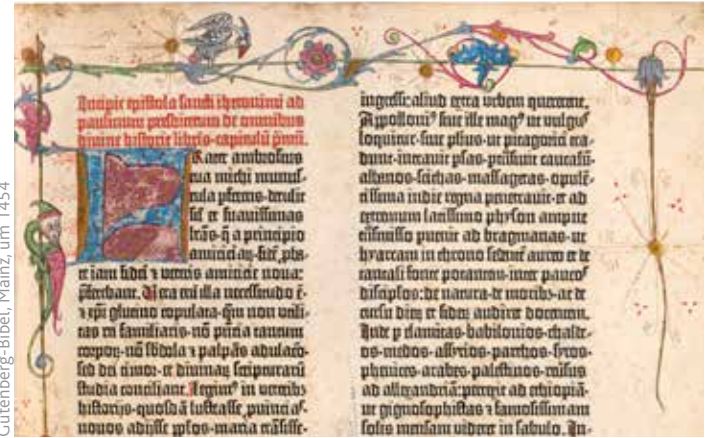 Gutenberg-Bibel, Mainz, um 1454
Incipit epistola sancti iheronimi ad
paulinum presbiterum de omnibus
divine historie libris·capitulū pmū.
Frater ambrosius
tua michi munus-
cula pferens·detulit
sił et suavissimas
lrās·q̄ a principio
amicicia℞·fidē pba-
te iam fidei ⁊ veteris amicicie nova:
pferebant. Vera eni illa necessitudo ē·
⁊ xpi glutino copulata·qm̄ non utili-
tas rei familiaris·nō pn̄cia tantum
corpor⁊·nō sbdola ⁊ palpās adulacō·
sed dei timor·et divina℞ scripturarū
studia conciliant. Legim⁹ in veterib⁊
historijs·quosdā lustrasse·puincias·
novos adijsse pplos·maria trāsisse·
ingressi:aliud extra urbem quererent.
Appolloni⁹ sive ille mag⁹ ut vulgus
loquitur·sive phus·ut pitagorici tra-
dunt·intravit psas·ptrāsivit caucasū·
albanos·scithas·massagetas·opulē-
tissima indie regna penetravit·et ad
extremum latissimo physon ampne
trāsmisso puenit ad bragmanas·ut
hyarcam in throno sedentē aureo et de
tantali fonte potantem·inter paucos
discipulos:de natura·de moribus·ac de
cursu die℞ et sideℽ audiret docentem.
Inde p elamitas·babilonios·chalde-
os·medos·assyrios·parthos·syros·
phenices·arabes·palestinos·reūsus
ad allexandriā:perrexit ad ethiopiā·
ut gignosophistas ⁊ famosissimam
solis mensam videret in sabulo. In-